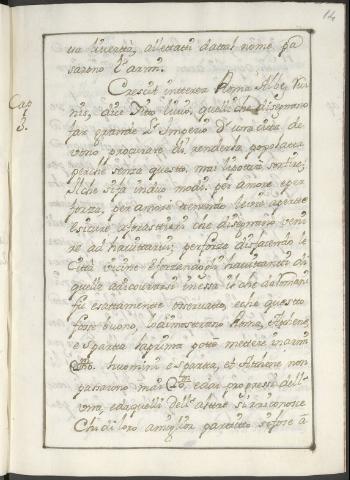 14
ua libertà, allettati dattal nome pa
sarono l'armi.
Cap
3.
Crescit interea Roma Albe, Rui
nis, dice Tito Livio, quelli che disegnono
far grande l'Imperio d'una città de
vono procurare di renderla popolata
perche senza questo, mai li potrà sortire;
Il che si fa in duo modi. per amore e per
forza. per amore tenendo le vie aperte
e sicure a forastieri che disegnono veni
re ad havitarvi; per forza disfacendo le
Città vicine e forzando gli havitanti di
quelle a ricoverarsi in essa il che da Romani
fù esattamente observato, e che questo
fosse buono, lo dimostrorono Roma, Athene,
e Sparta la prima potè mettere in armi
huomini e Sparta, et Athene non
passorono mai e dai progressi dell'
una, e da quelli dell'altre si riconosce
Chi di loro a miglior partito si fosse à